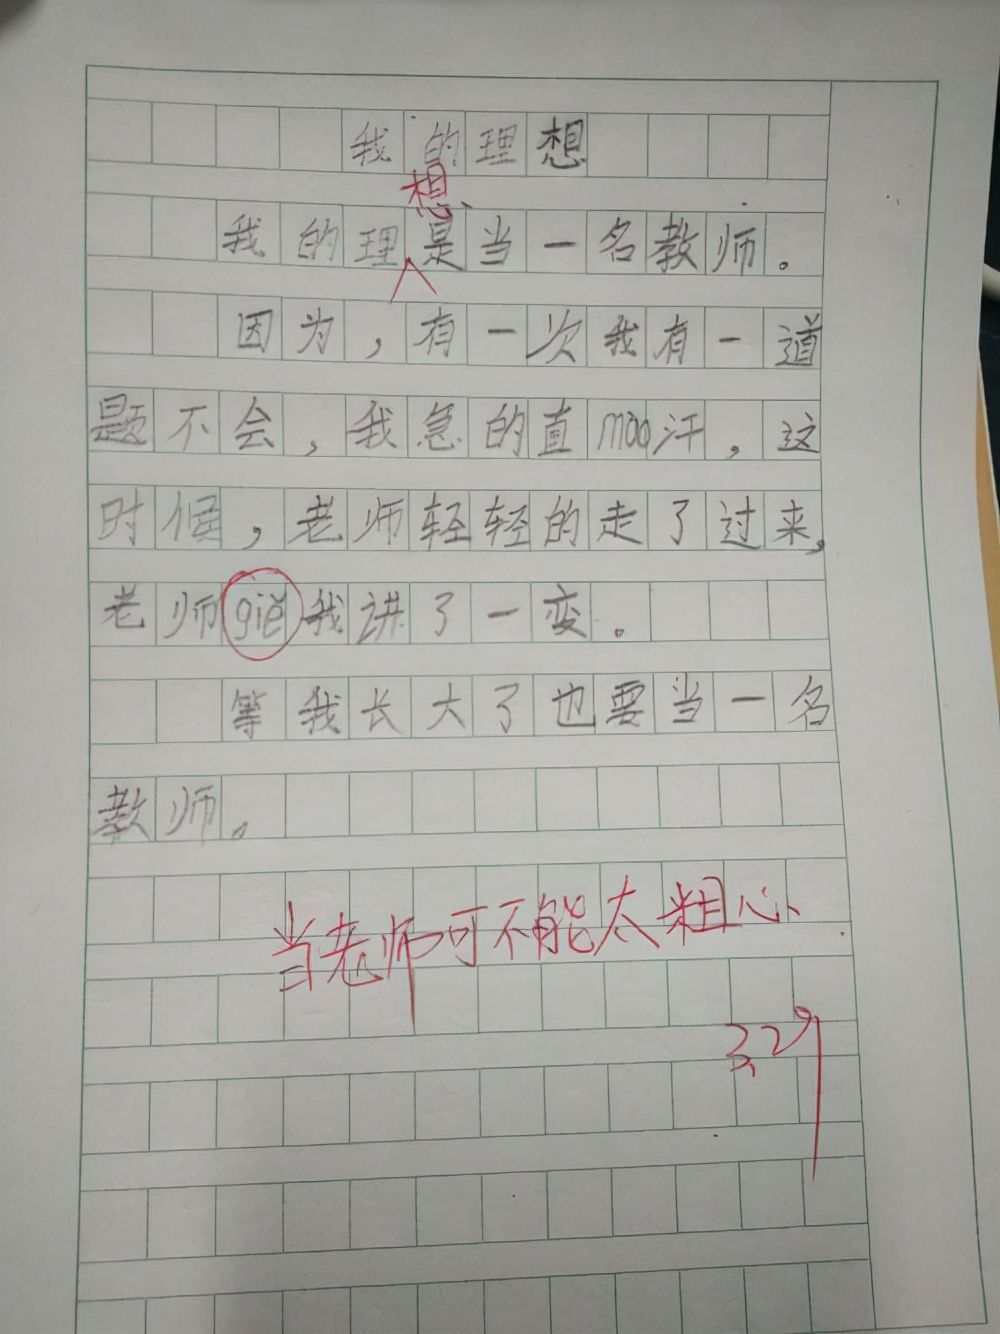 我的理想
想
我的理是当一名教师。
因为,有一次我有一道
题不会,我急的直mao汗,这
时候,老师轻轻的走了过来,
老师gie我讲了一变。
等我长大了也要当一名
教师。
当老师可不能太粗心
3.29